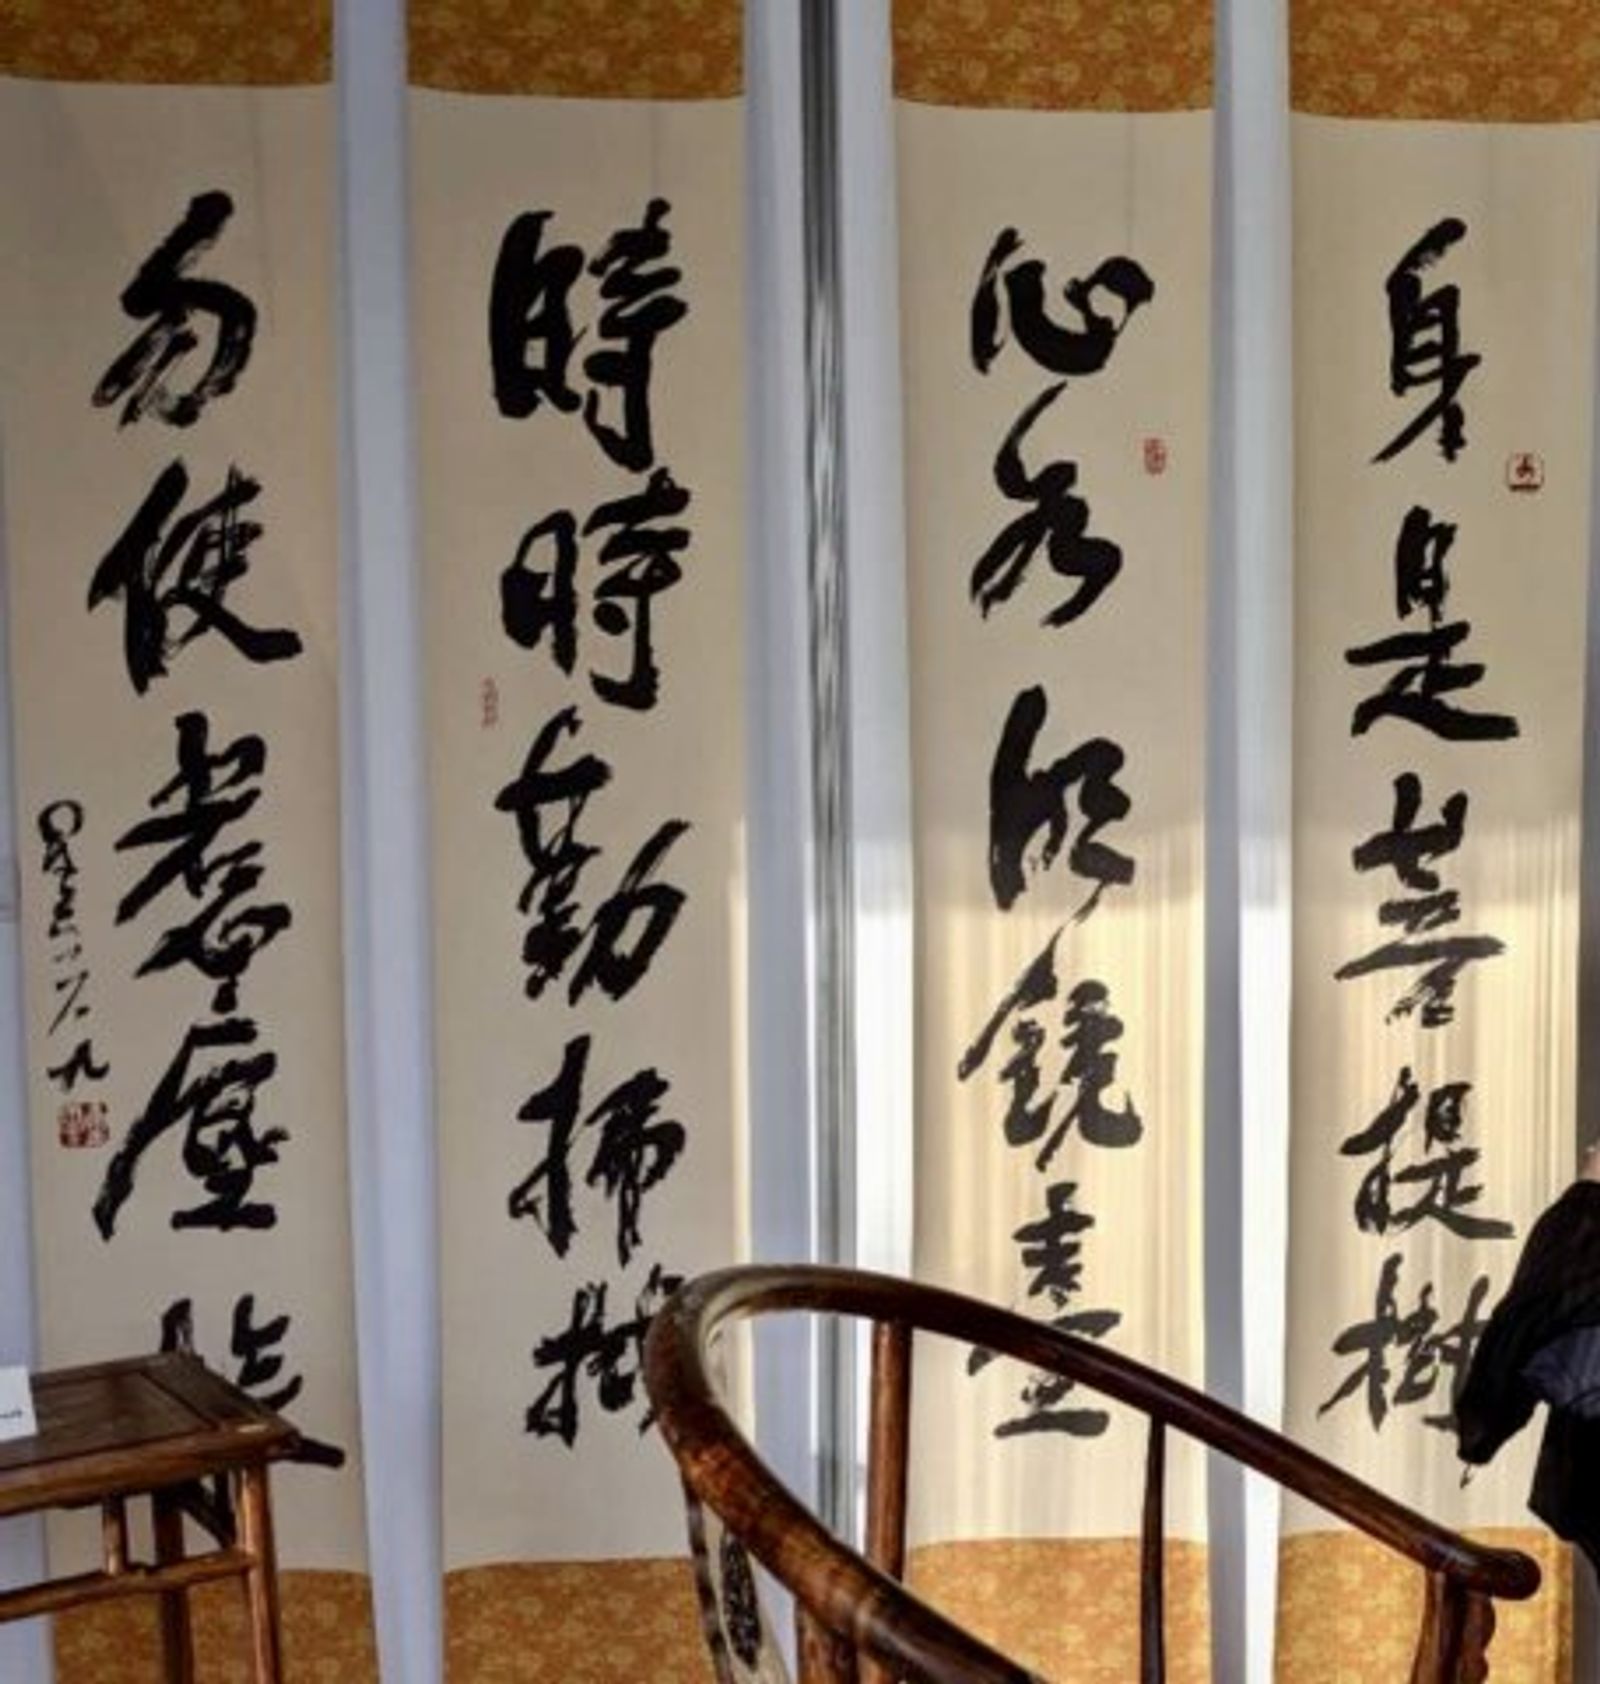 身是菩提樹
心如明鏡臺
時時勤拂拭
勿使惹塵埃